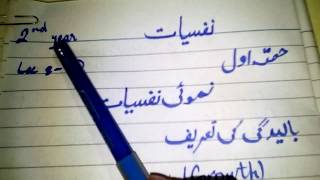 2nd year
نفسیات
حصہ اول
نموئی نفسیات
بالیدگی کی تعریف
(Growth)